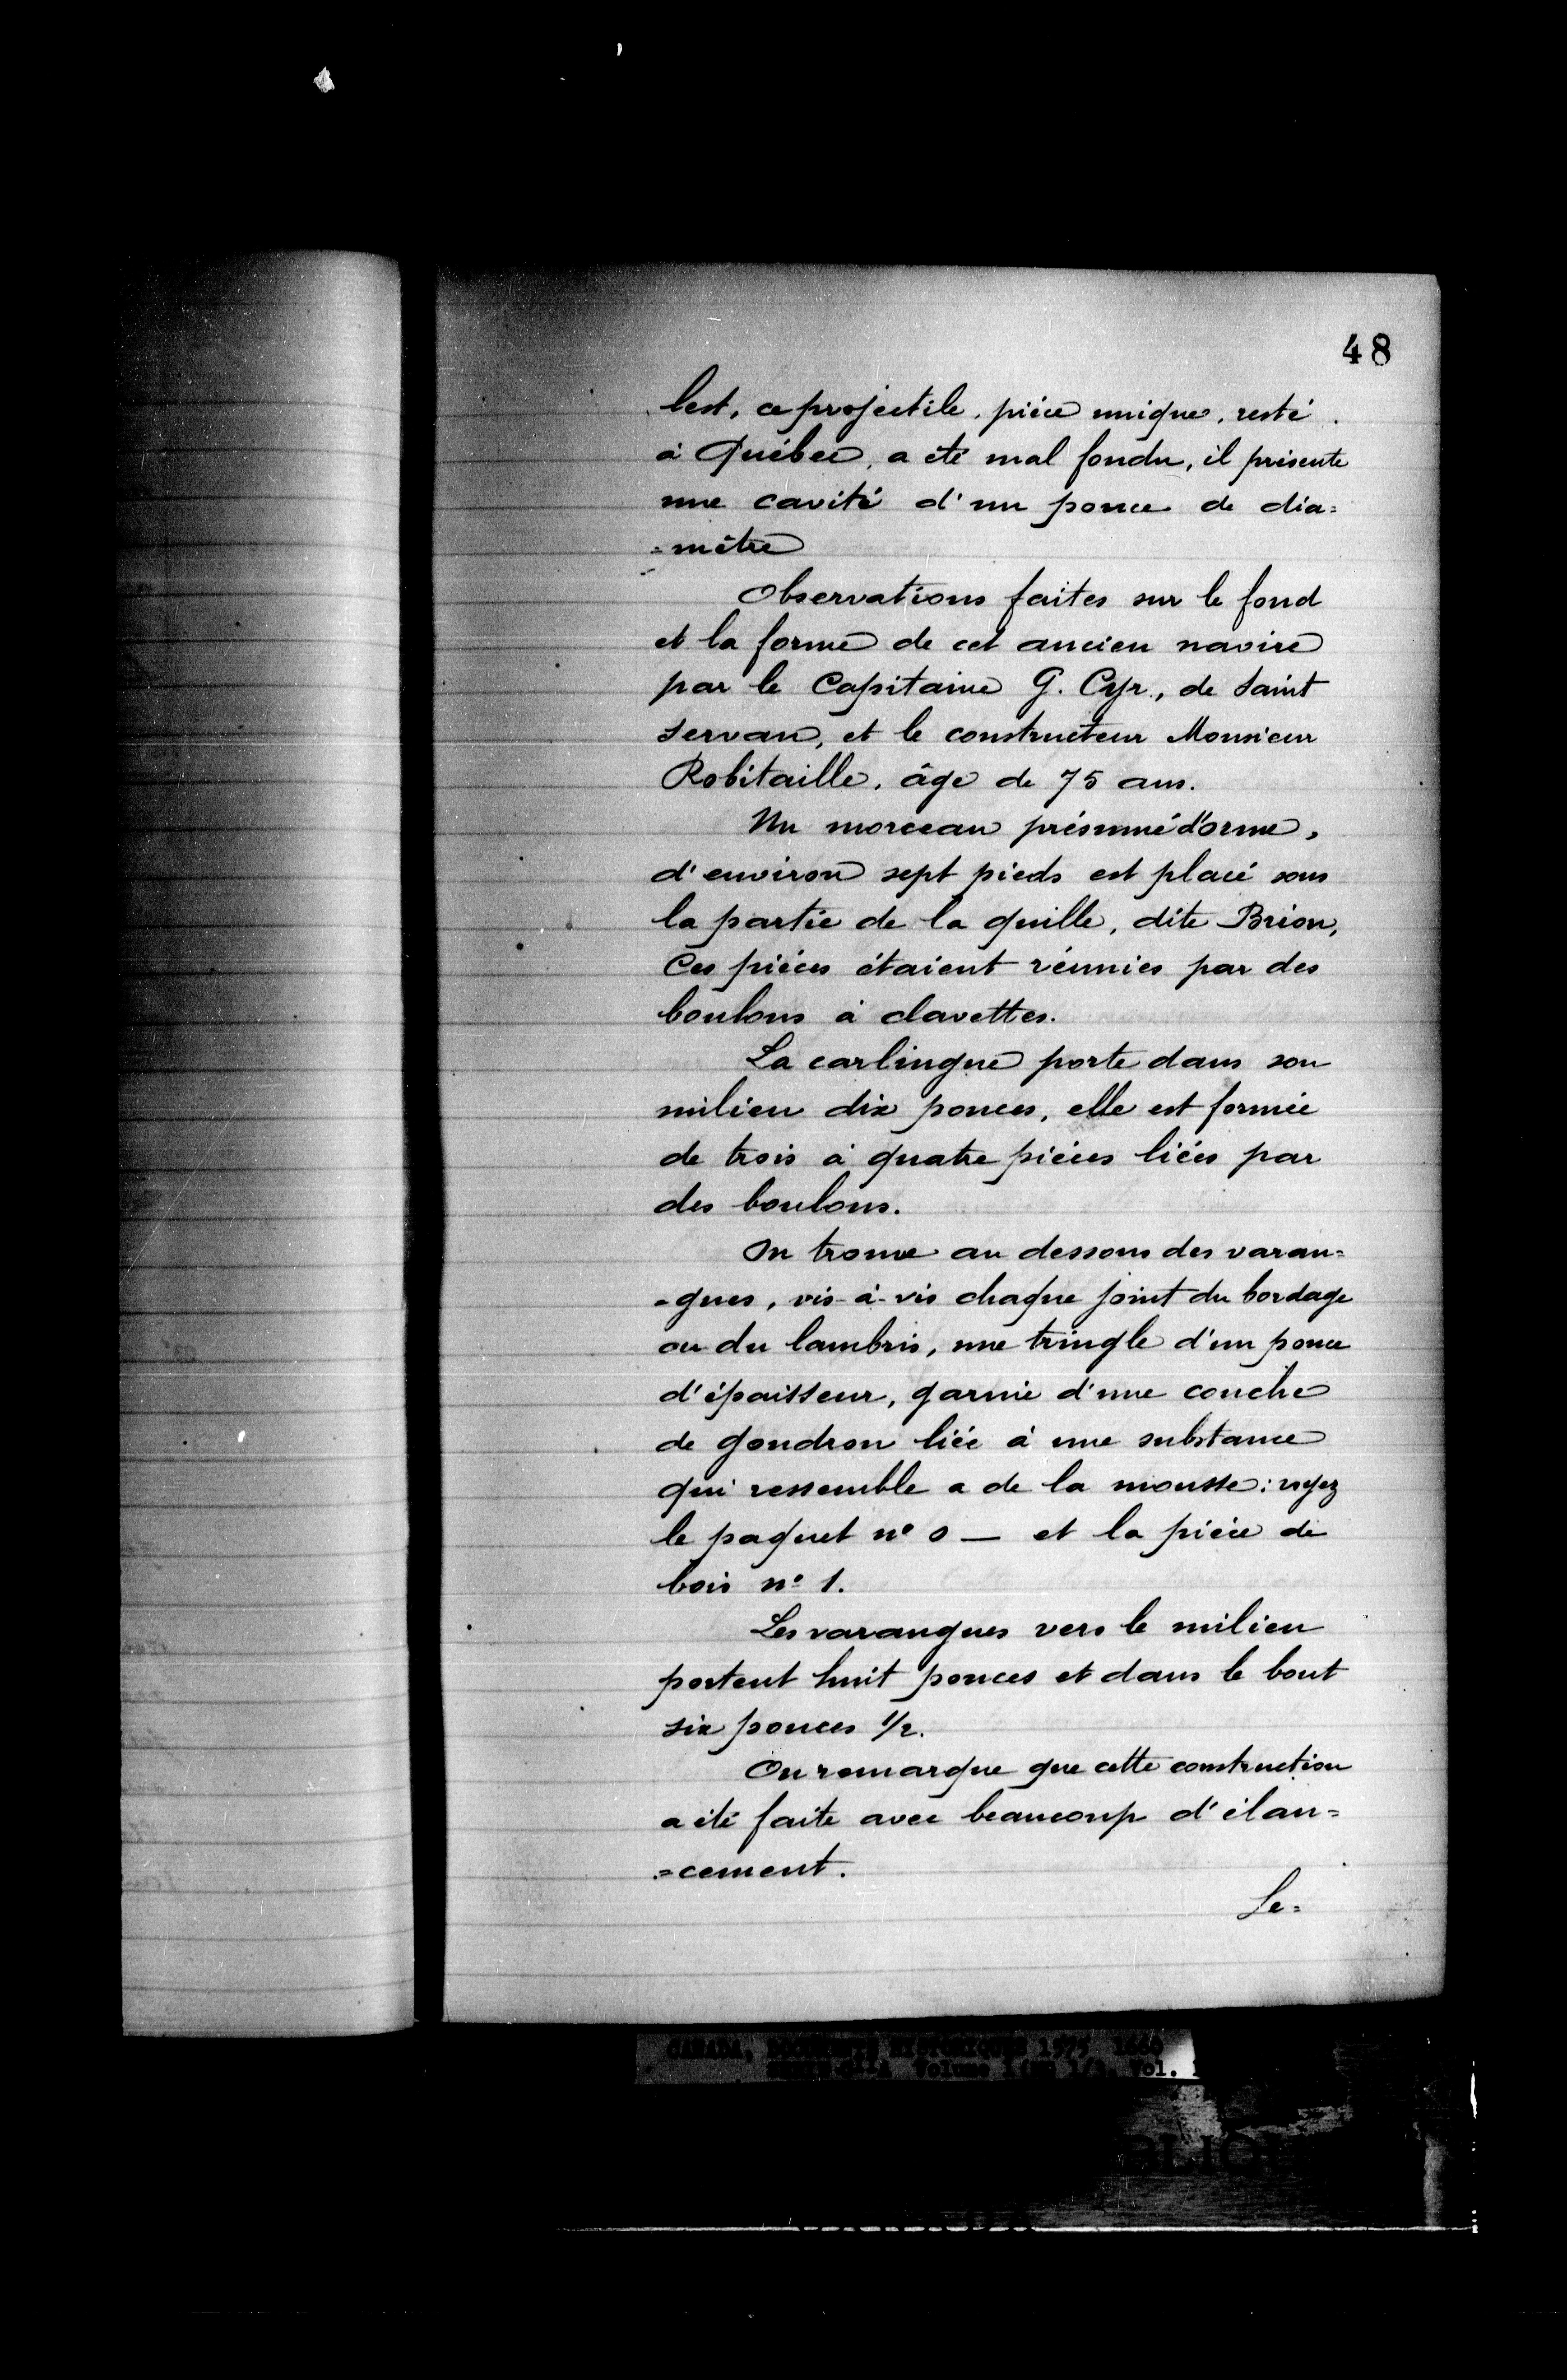 48
lest, ce projectile, pièce unique, resté
à Québec, a été mal fondu, il présente
une cavité d'un pouce de dia=
=mètre
Observations faites sur le fond
et la forme de cet ancien navire
par le Capitaine G. Cyr., de Saint
Servan, et le constructeur Monsieur
Robitaille, âgé de 75 ans.
Un morceau présumé d'orme,
d'environ sept pieds est placé sous
la partie de la quille, dite Brion,
Ces pièces étaient réunies par des
boulons à clavettes.
La carlingue porte dans son
milieu dix pouces, elle est formée
de trois à quatre pièces liées par
des boulons.
On trouve au dessous des varan=
=gues, vis-à-vis chaque joint du bordage
ou du lambris, une tringle d'un pouce
d'épaisseur, garnie d'une couche
de goudron liée à une substance
qui ressemble a de la mousse: voyez
le paquet nº 0 — et la pièce de
bois nº 1.
Les varangues vers le milieu
portent huit pouces et dans le bout
six pouces 1/2.
On remarque que cette construction
a été faite avec beaucoup d'élan=
=cement.
Le=
CANADA, DOCUMENTS HISTORIQUES